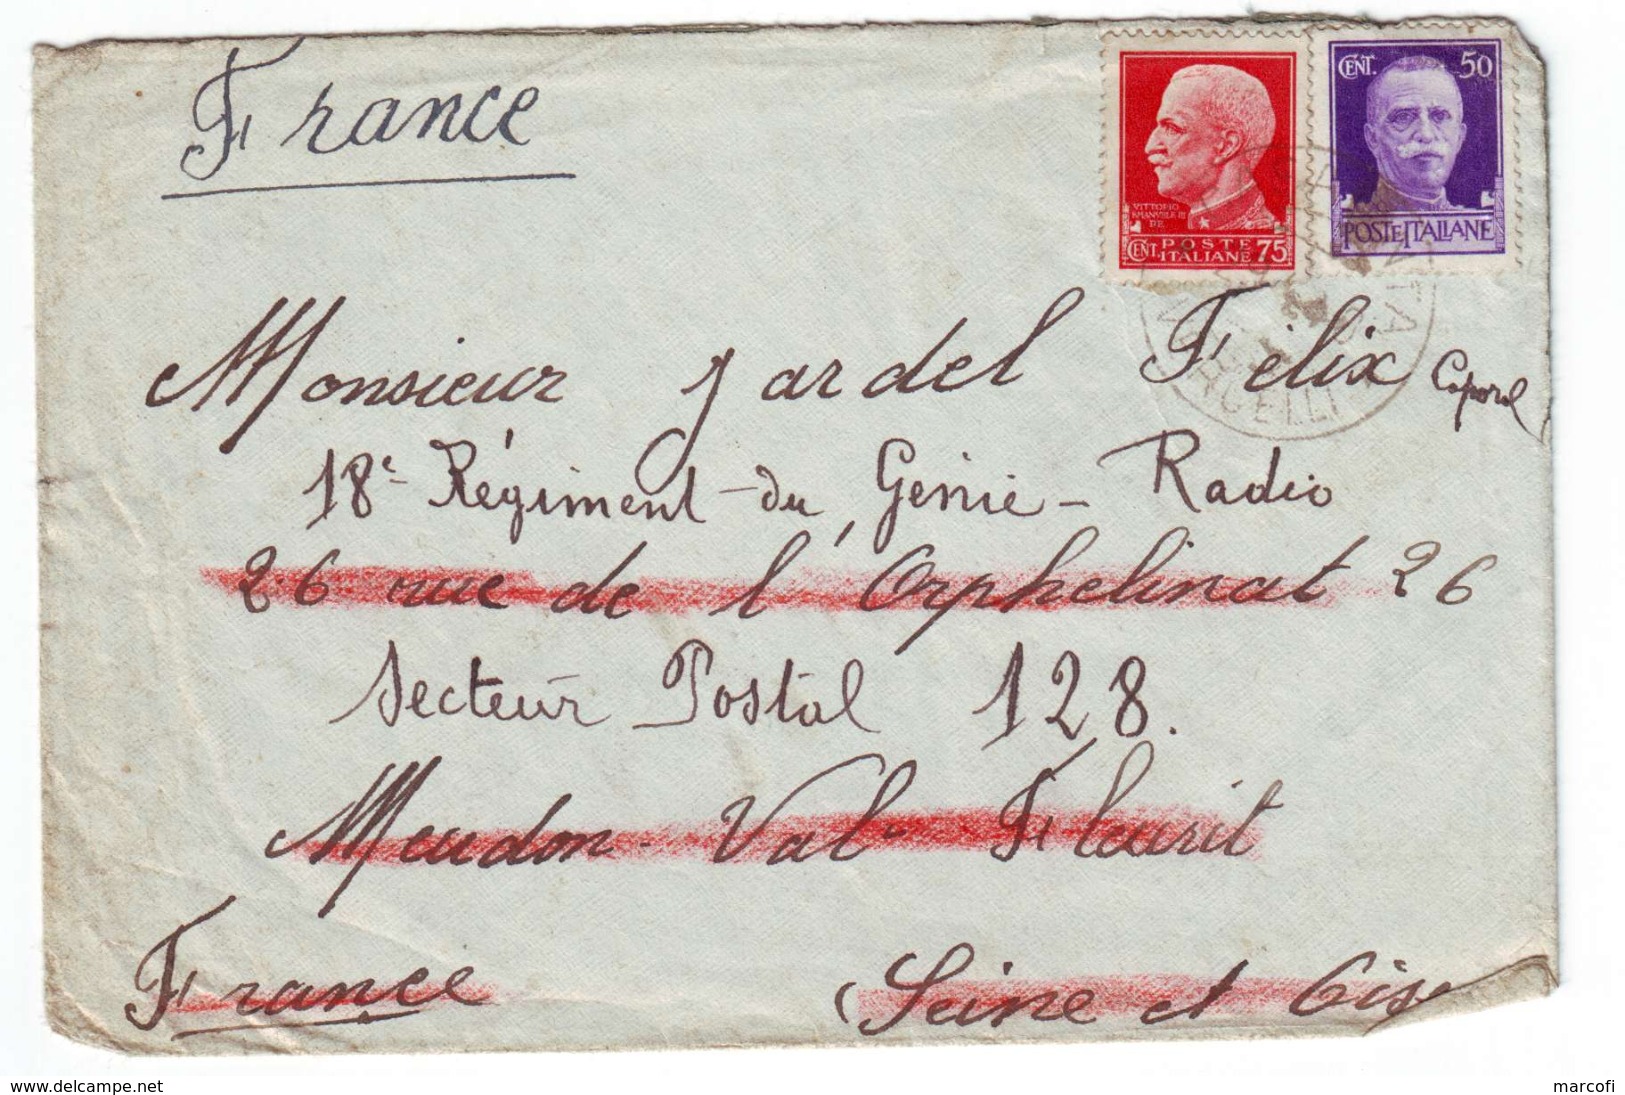 France
VITTORIO
EMANVELE III
RE
CENT. POSTE ITALIANE 75
CENT. 50
POSTE ITALIANE
Monsieur Jardel Félix Caporal
18e Régiment - du Génie - Radio
26 rue de l'Orphelinat 26
Secteur Postal 128.
Meudon - Val - Fleurit
France (Seine et Oise
www.delcampe.net
marcofi